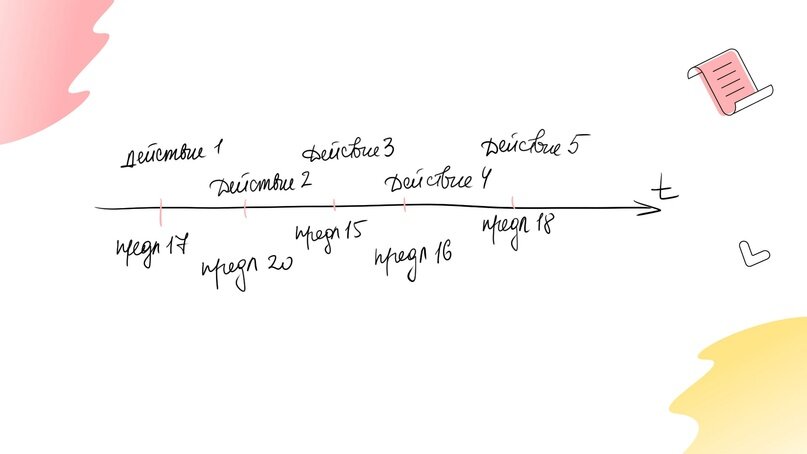 Действие 1
Действие 2
Действие 3
Действие 4
Действие 5
t
предл 17
предл 20
предл 15
предл 16
предл 18